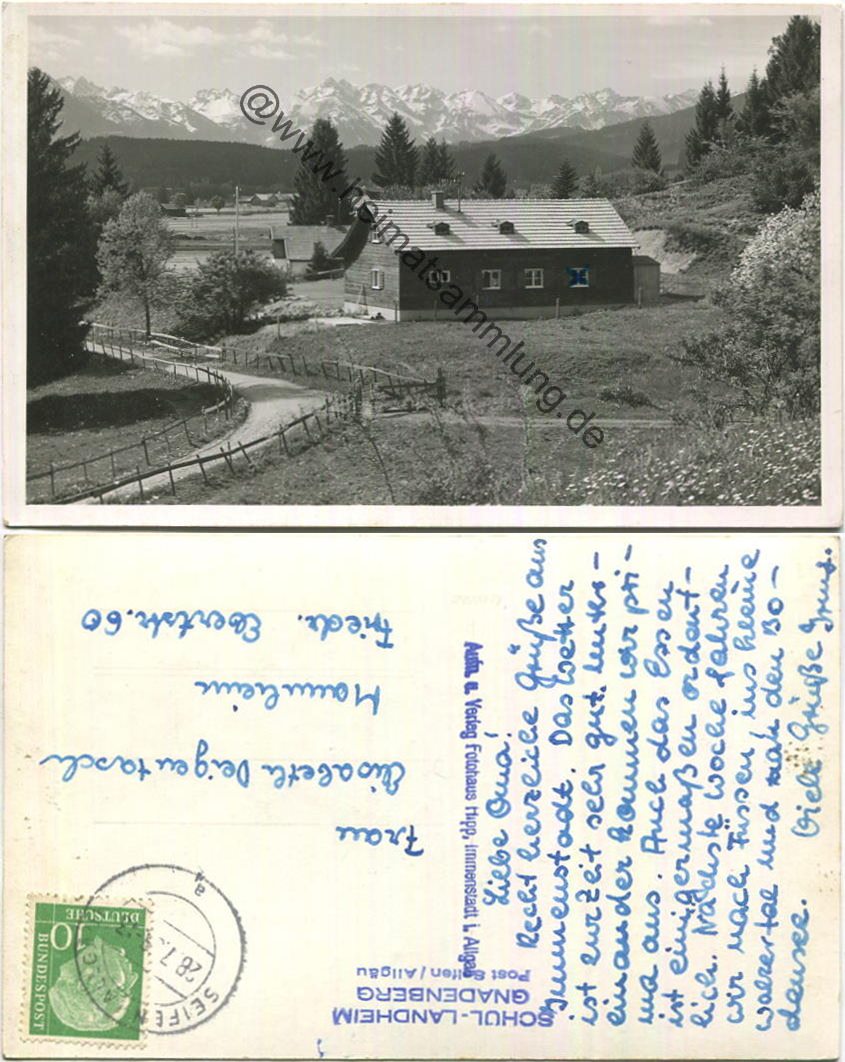 @www.heimatsammlung.de
Liebe Oma!
Recht herzliche Grüße aus
Immenstadt. Das Wetter
ist zurzeit sehr gut. Unter-
einander kommen wir pri-
ma aus. Auch das Essen
ist einigermaßen ordent-
lich. Nächste Woche fahren
wir nach Füssen, ins kleine
walsertal und nach den Bo-
densee. Viele Grüße
Aufn. u. Verlag Fotohaus Hipp, Immenstadt i. Allgäu
SCHUL-LANDHEIM
GNADENBERG
Post Seifen/Allgäu
DEUTSCHE
BUNDESPOST
10
SEIFEN
28.7.
a
Frau
Elisabeth Deigentasch
Mannheim
Friedr. Ebertstr. 60